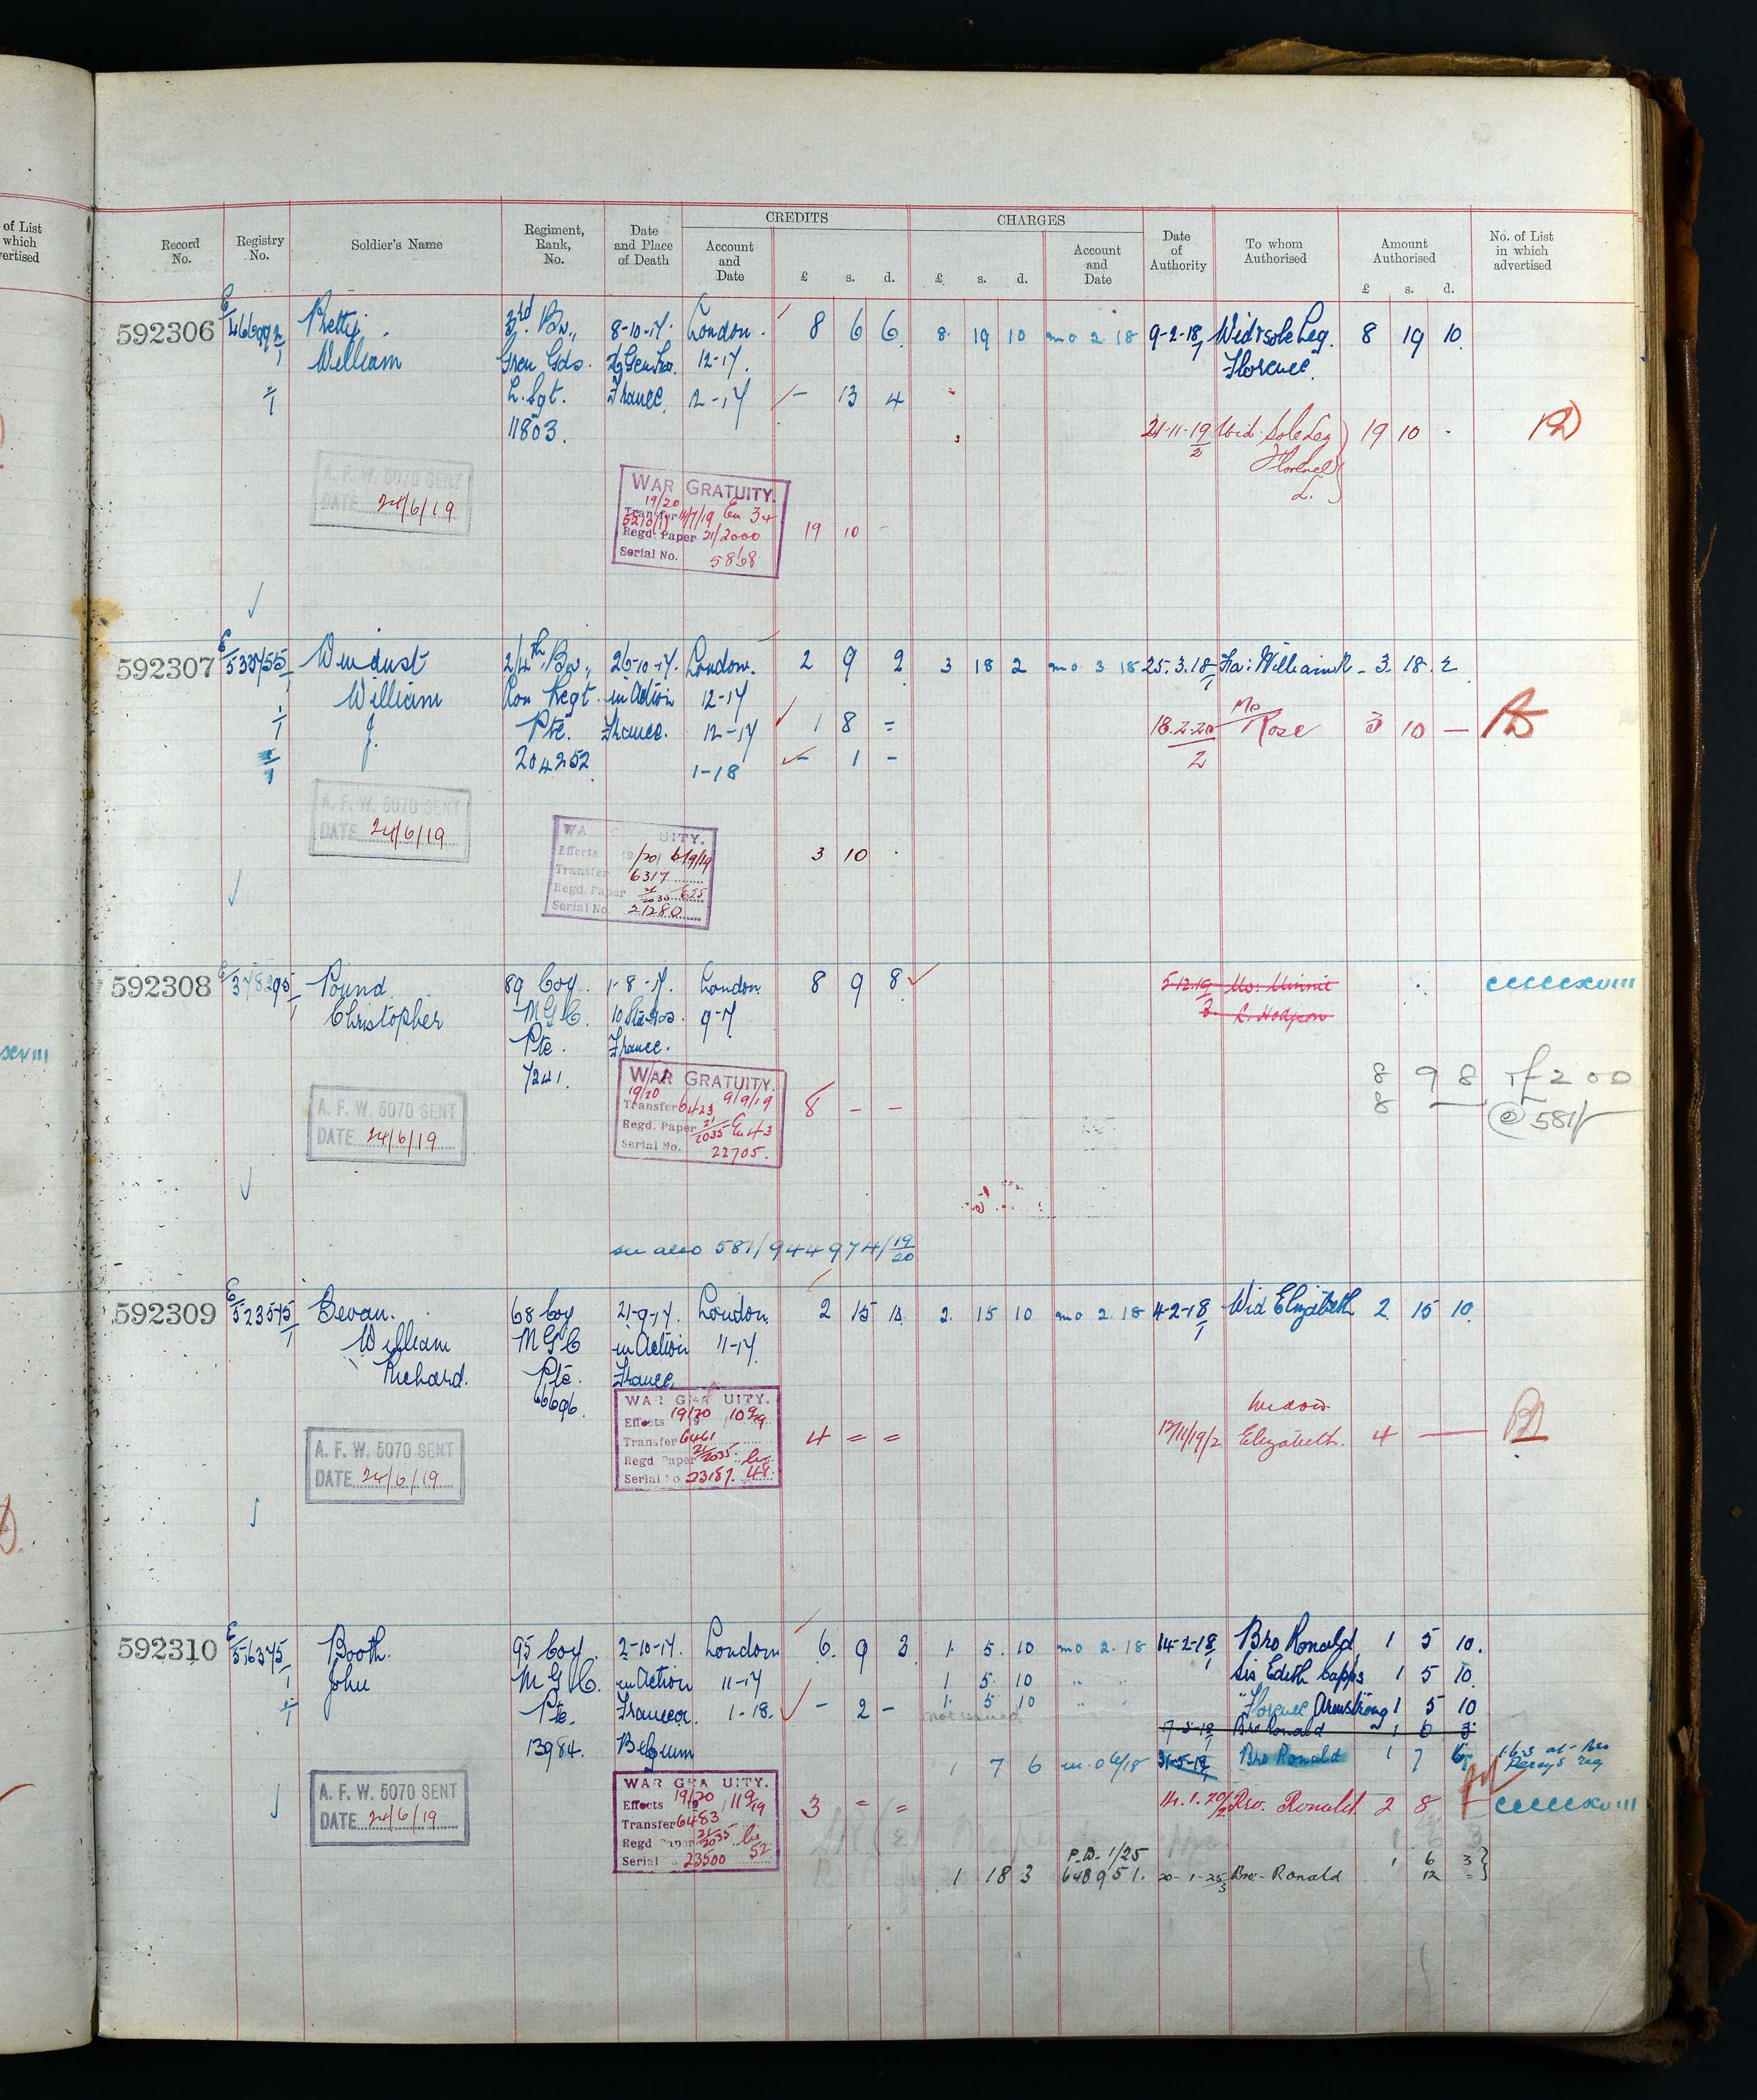 of List
which
vertised
CREDITS
CHARGES
Record No.
Registry No.
Soldier's Name
Regiment, Rank, No.
Date and Place of Death
Account and Date
£ s. d.
£ s. d.
Account and Date
Date of Authority
To whom Authorised
Amount Authorised
£ s. d.
No. of List in which advertised
592306 Pretty 3rd Bn., 8-10-17. London. 8 6 6 8 19 10 mo 2 18 9-2-18 Wid & sole Leg. 8 19 10
William Gren Gds. 12-17. Florence
L. Sgt. France. 12-17 - 13 4
11803.
21-11-19 Wid. Sole Leg 19 10 -
2 Florence
L.
A. F. W. 5070 SENT
DATE 24/6/19
WAR GRATUITY.
19/20
Transfer
Regd. Paper 21/2000
Serial No. 5868
19 10 -
592307 Windust 2/4th Bn., 26-10-17. London. 2 9 2 3 18 2 mo 3 18 25.3.18 Fa: William R 3 18 2
William Lon Regt. in Action 12-17
J. Pte. France. 12-17 1 8 =
204252 1-18 - 1 -
18-2-20 Mo Rose 3 10 —
2
A. F. W. 5070 SENT
DATE 24/6/19
Effects 19/20
Transfer 6317
Regd. Paper
Serial No. 21280
3 10
592308 Pound 89 Coy. 1-8-17. London. 8 9 8 5-12-19 Mo: Minnie
Christopher M G C. 9-17
Pte. France.
7241.
ccccccxviii
xcviii
8 9 8 £200
8 — @ 581/
WAR GRATUITY.
19/20 9/9/19
Transfer 6423
Regd. Paper 21/2035
Serial No. 22705.
8 - -
A. F. W. 5070 SENT
DATE 24/6/19
see also 581/944974/19/20
592309 Bevan. 68 Coy 21-9-17. London. 2 15 10 2 15 10 mo 2.18 4-2-18 Wid Elizabeth 2 15 10
William M G C in Action 11-17.
Richard. Pte. France.
66696.
WAR GRATUITY.
Effects 19/20
Transfer 6461
Regd Paper 21/2035
Serial No 23187. 48
4 = =
Widow
17/11/19/2 Elizabeth. 4 —
A. F. W. 5070 SENT
DATE 24/6/19
592310 Booth. 95 Coy. 2-10-17. London 6 9 3 1 5 10 mo 2.18 14-2-18 Bro Ronald 1 5 10.
John M G C. in Action 11-17 1 5 10 " " Sis Edith Capps 1 5 10
Pte. France or 1-18. - 2 - 1 5 10 " " " Florence Armstrong 1 5 10
not issued
13984. Belgium
7-5-18 Bro Ronald 1 6 3
1 7 6 31-5-18 Bro Ronald 1 7 6
1.6.3 at Bro
Percy's req
14.1.20/2 Bro. Ronald 2 8 ccccccxviii
A. F. W. 5070 SENT
DATE 24/6/19
WAR GRATUITY.
Effects 19/20
Transfer 6483
Regd Paper 21/2035
Serial 23500 52
3 = =
P.D. 1/25 1 6 3
1 18 3 648951. 20-1-25 Bro- Ronald 12 =